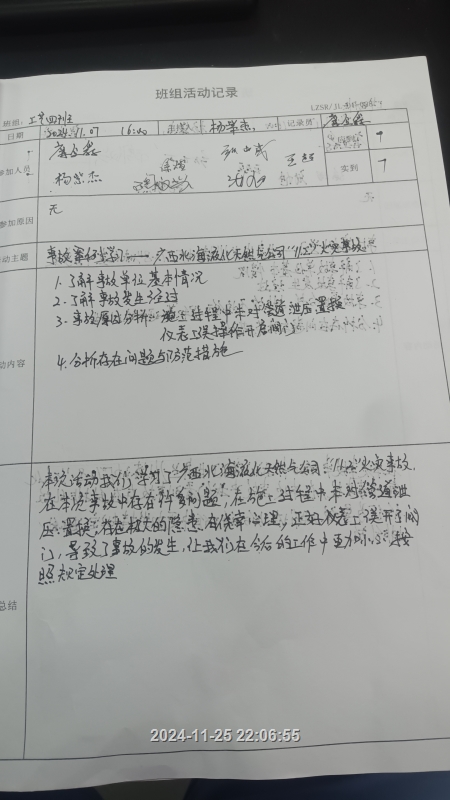 班组活动记录
班组: 工艺四班
日期 2024.11.07 16:00 杨崇杰 记录员
参加人员
杨崇杰 王超 实到 7
参加原因 无
动主题 事故案例学习——广西北海液化天然气公司"11.2"火灾事故
1. 了解事故单位基本情况
2. 了解事故发生经过
3. 事故原因分析: 施工过程中未对管道泄压置换
仪表工误操作开启阀门
动内容
4. 分析存在问题与防范措施
本次活动我们学习了广西北海液化天然气公司"11.2"火灾事故,
在本次事故中存在许多问题, 在施工过程中未对管道泄
压、置换, 存在极大的隐患, 存侥幸心理, 正好仪表工误开了阀
门, 导致了事故的发生, 让我们在今后的工作中更加小心, 按
照规定处理
总结
2024-11-25 22:06:55